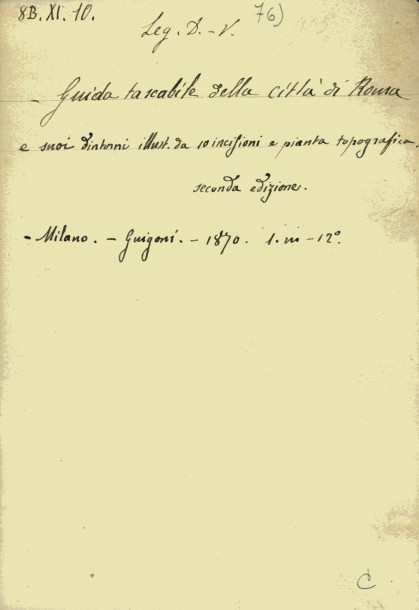 8B. XI. 10.
Leg. D. - V. 76)
- Guida tascabile della città di Roma
e suoi dintorni illust. da 10 incisioni e pianta topografica.
seconda edizione.
- Milano. - Guigoni. - 1870. 1. in - 12°.
C